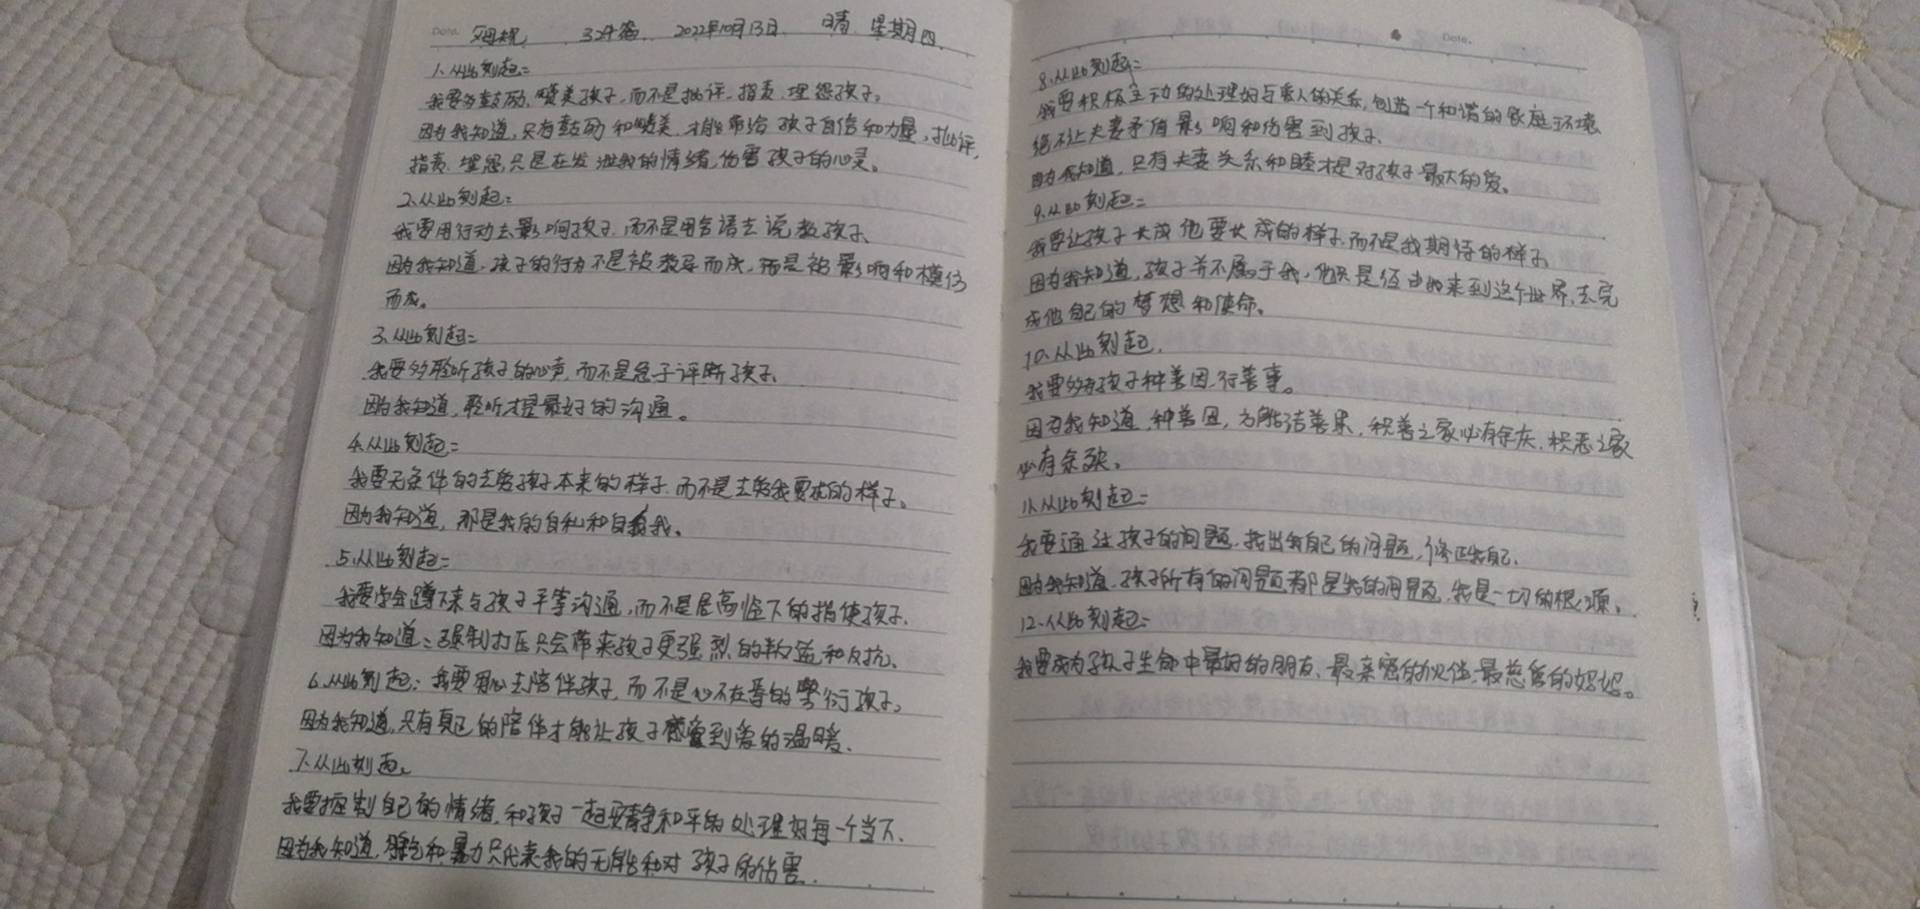 父母规 324遍 2022年10月13日 晴 星期四
1、从此刻起:
我要多鼓励、赞美孩子,而不是批评、指责、埋怨孩子。
因为我知道,只有鼓励和赞美,才能带给孩子自信和力量,批评,
指责、埋怨只是在发泄我的情绪,伤害孩子的心灵。
2、从此刻起:
我要用行动去影响孩子,而不是用言语去说教孩子、
因为我知道,孩子的行为不是被教导而成,而是被影响和模仿
而成。
3、从此刻起:
我要多聆听孩子的心声,而不是急于评断孩子、
因为我知道,聆听才是最好的沟通。
4、从此刻起:
我要无条件的去爱孩子本来的样子,而不是去爱我要求的样子。
因为我知道,那是我的自私和自我。
5、从此刻起:
我要学会蹲下来与孩子平等沟通,而不是居高临下的指使孩子、
因为我知道:强制打压只会带来孩子更强烈的叛逆和反抗、
6、从此刻起:我要用心去陪伴孩子,而不是心不在焉的敷衍孩子。
因为我知道,只有真正的陪伴才能让孩子感受到爱的温暖、
7、从此刻起。
我要控制自己的情绪,和孩子一起安静和平的处理好每一个当下、
因为我知道,脾气和暴力只代表我的无能和对孩子的伤害、
Date.
8、从此刻起:
我要积极主动的处理好与爱人的关系,创造一个和谐的家庭环境
绝不让夫妻矛盾影响和伤害到孩子、
因为我知道,只有夫妻关系和睦才是对孩子最大的爱。
9、从此刻起:
我要让孩子长成他要长成的样子,而不是我期待的样子、
因为我知道,孩子并不属于我,他只是经由我来到这个世界,去完
成他自己的梦想和使命。
10、从此刻起、
我要多为孩子种善因,行善事。
因为我知道,种善因,方能结善果,积善之家必有余庆,积恶之家
必有余殃。
11、从此刻起:
我要通过孩子的问题,找出我自己的问题,修正我自己、
因为我知道,孩子所有的问题都是我的问题,我是一切的根源。
12、从此刻起:
我要成为孩子生命中最好的朋友、最亲密的伙伴,最慈爱的妈妈。